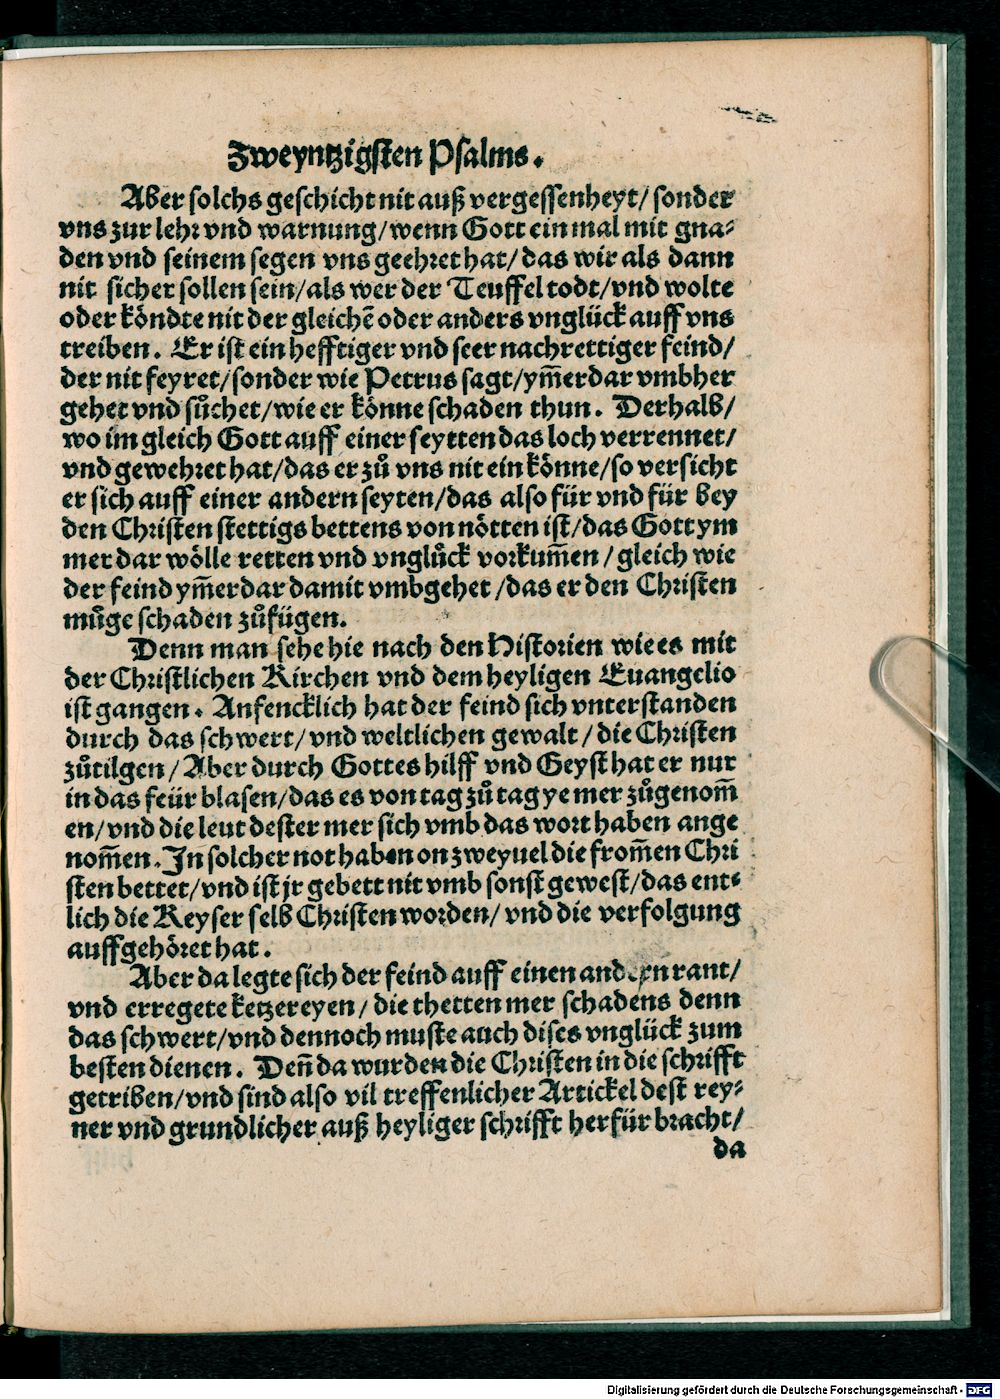 Zweyntzigsten Psalms.
Aber solchs geschicht nit auß vergessenheyt/ sonder
vns zur lehr vnd warnung/ wenn Gott ein mal mit gna⸗
den vnd seinem segen vns geehret hat/ das wir als dann
nit sicher sollen sein/ als wer der Teuffel todt/ vnd wolte
oder köndte nit der gleichẽ oder anders vnglück auff vns
treiben. Er ist ein hefftiger vnd seer nachrettiger feind/
der nit feyret/ sonder wie Petrus sagt/ ym̃erdar vmbher
gehet vnd sůchet/ wie er könne schaden thun. Derhalb/
wo im gleich Gott auff einer seytten das loch verrennet/
vnd gewehret hat/ das er zů vns nit ein könne/ so versicht
er sich auff einer andern seyten/ das also für vnd für bey
den Christen stettigs bettens von nötten ist/ das Gott ym
mer dar wölle retten vnd vnglůck vorkum̃en/ gleich wie
der feind ym̃erdar damit vmbgehet/ das er den Christen
můge schaden zůfügen.
Denn man sehe hie nach den Historien wie es mit
der Christlichen Kirchen vnd dem heyligen Euangelio
ist gangen. Anfencklich hat der feind sich vnterstanden
durch das schwert/ vnd weltlichen gewalt/ die Christen
zůtilgen/ Aber durch Gottes hilff vnd Geyst hat er nur
in das feür blasen/ das es von tag zů tag ye mer zůgenom̃
en/ vnd die leut dester mer sich vmb das wort haben ange
nom̃en. In solcher not haben on zweyuel die from̃en Chri
sten bettet/ vnd ist jr gebett nit vmb sonst gewest/ das ent⸗
lich die Keyser selb Christen worden/ vnd die verfolgung
auffgehöret hat.
Aber da legte sich der feind auff einen andern rant/
vnd erregete ketzereyen/ die thetten mer schadens denn
das schwert/ vnd dennoch muste auch dises vnglück zum
besten dienen. Deñ da wurden die Christen in die schrifft
getriben/ vnd sind also vil treffenlicher Artickel dest rey⸗
ner vnd grundlicher auß heyliger schrifft herfür bracht/
da
Digitalisierung gefördert durch die Deutsche Forschungsgemeinschaft - DFG